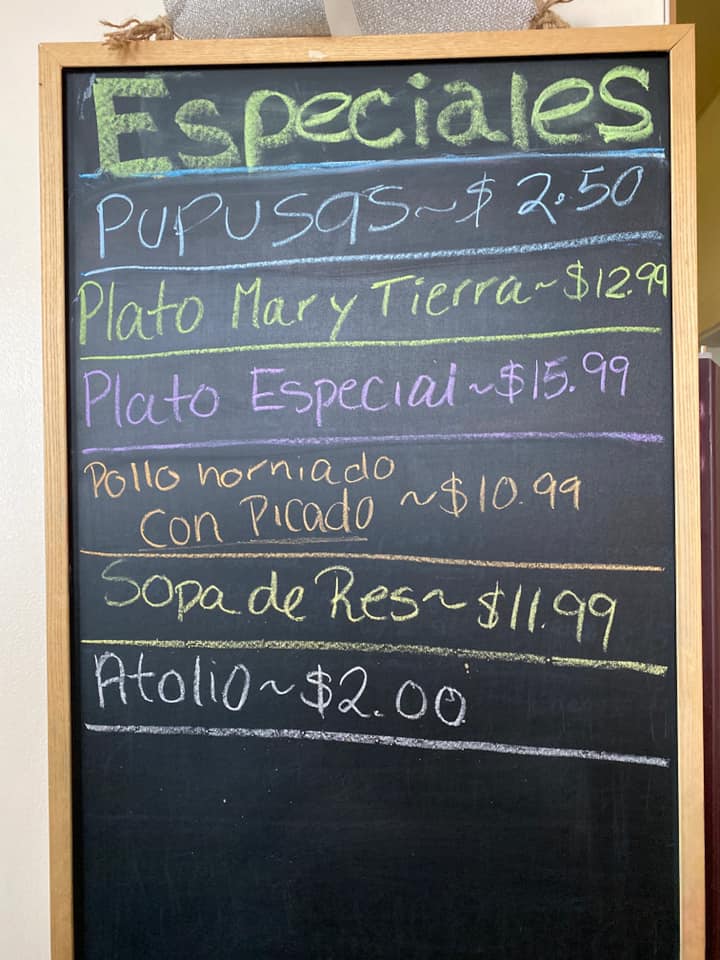 Especiales
PUPUSAS~$2.50
Plato Mar y Tierra~$12.99
Plato Especial~$15.99
Pollo horniado
Con Picado ~$10.99
Sopa de Res~$11.99
Atolio~$2.00